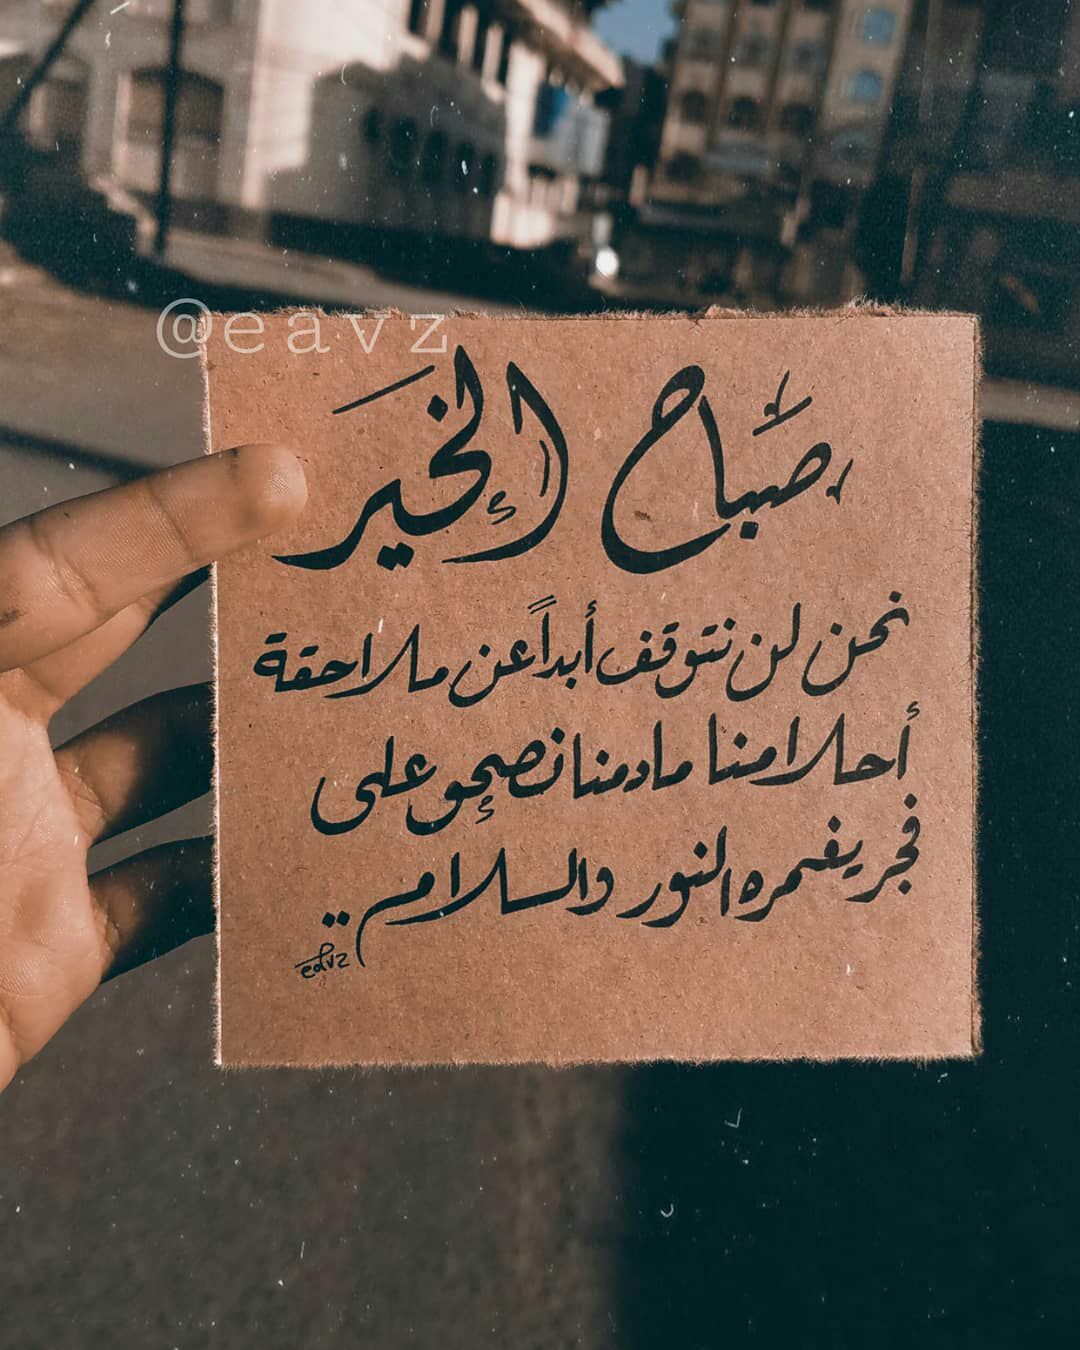 @eavz
صباح الخير
نحن لن نتوقف أبداً عن ملاحقة
أحلامنا مادمنا نصحو على
فجر يغمره النور والسلام..
eavz